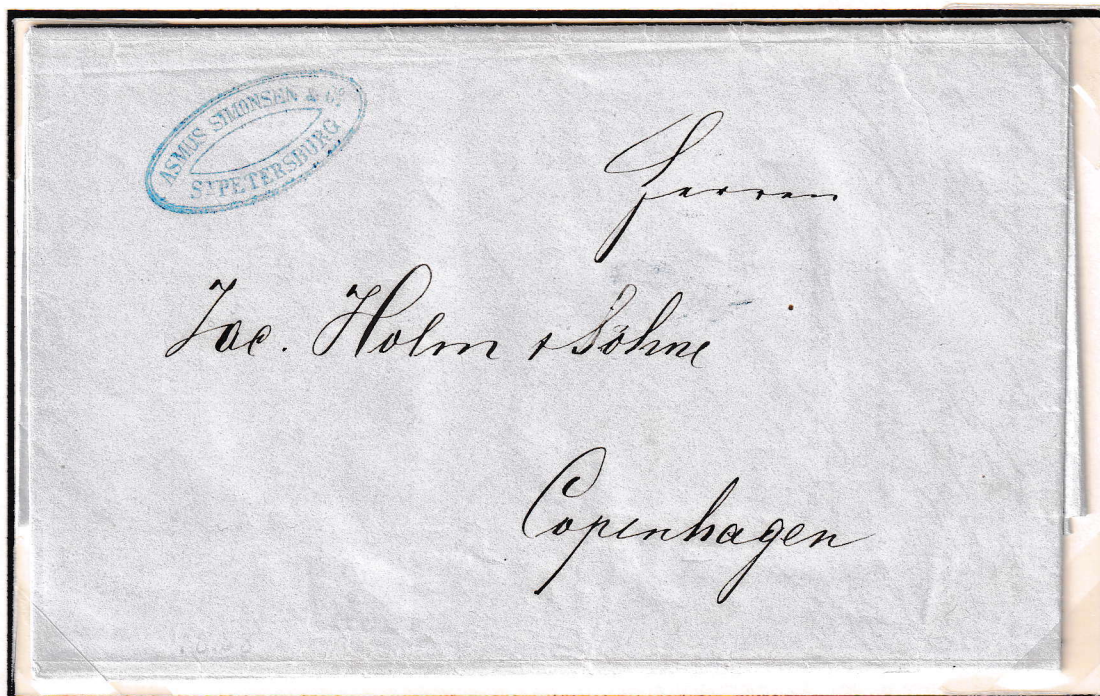 ASMUS SIMONSEN & Co.
ST PETERSBURG
Herren
Jac. Holm & Söhne
Copenhagen